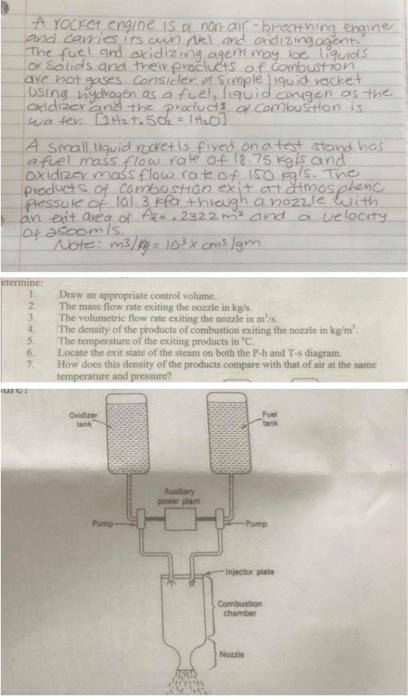 A rocket engine is a non-air-breathing engine
and carries its own fuel and oxidizing agent.
The fuel and oxidizing agent may be liquids
or solids and their products of combustion
are hot gases. Consider a simple liquid rocket
using hydrogen as a fuel, liquid oxygen as the
oxidizer and the products of combustion is
water. [1H2 + .5O2 = 1H2O]
A small liquid rocket is fired on a test stand has
a fuel mass flow rate of 18.75 kg/s and
oxidizer mass flow rate of 150 kg/s. The
products of combustion exit at atmospheric
pressure of 101.3 kPa through a nozzle with
an exit area of A2 = .2322 m² and a velocity
of 2500m/s.
Note: m3/kg = 10³ x cm3/gm
etermine:
1. Draw an appropriate control volume.
2. The mass flow rate exiting the nozzle in kg/s.
3. The volumetric flow rate exiting the nozzle in m³/s.
4. The density of the products of combustion exiting the nozzle in kg/m³.
5. The temperature of the exiting products in °C.
6. Locate the exit state of the steam on both the P-h and T-s diagram.
7. How does this density of the products compare with that of air at the same
temperature and pressure?
Oxidizer
tank
Fuel
tank
Auxiliary
power plant
Pump
Pump
Injector plate
Combustion
chamber
Nozzle